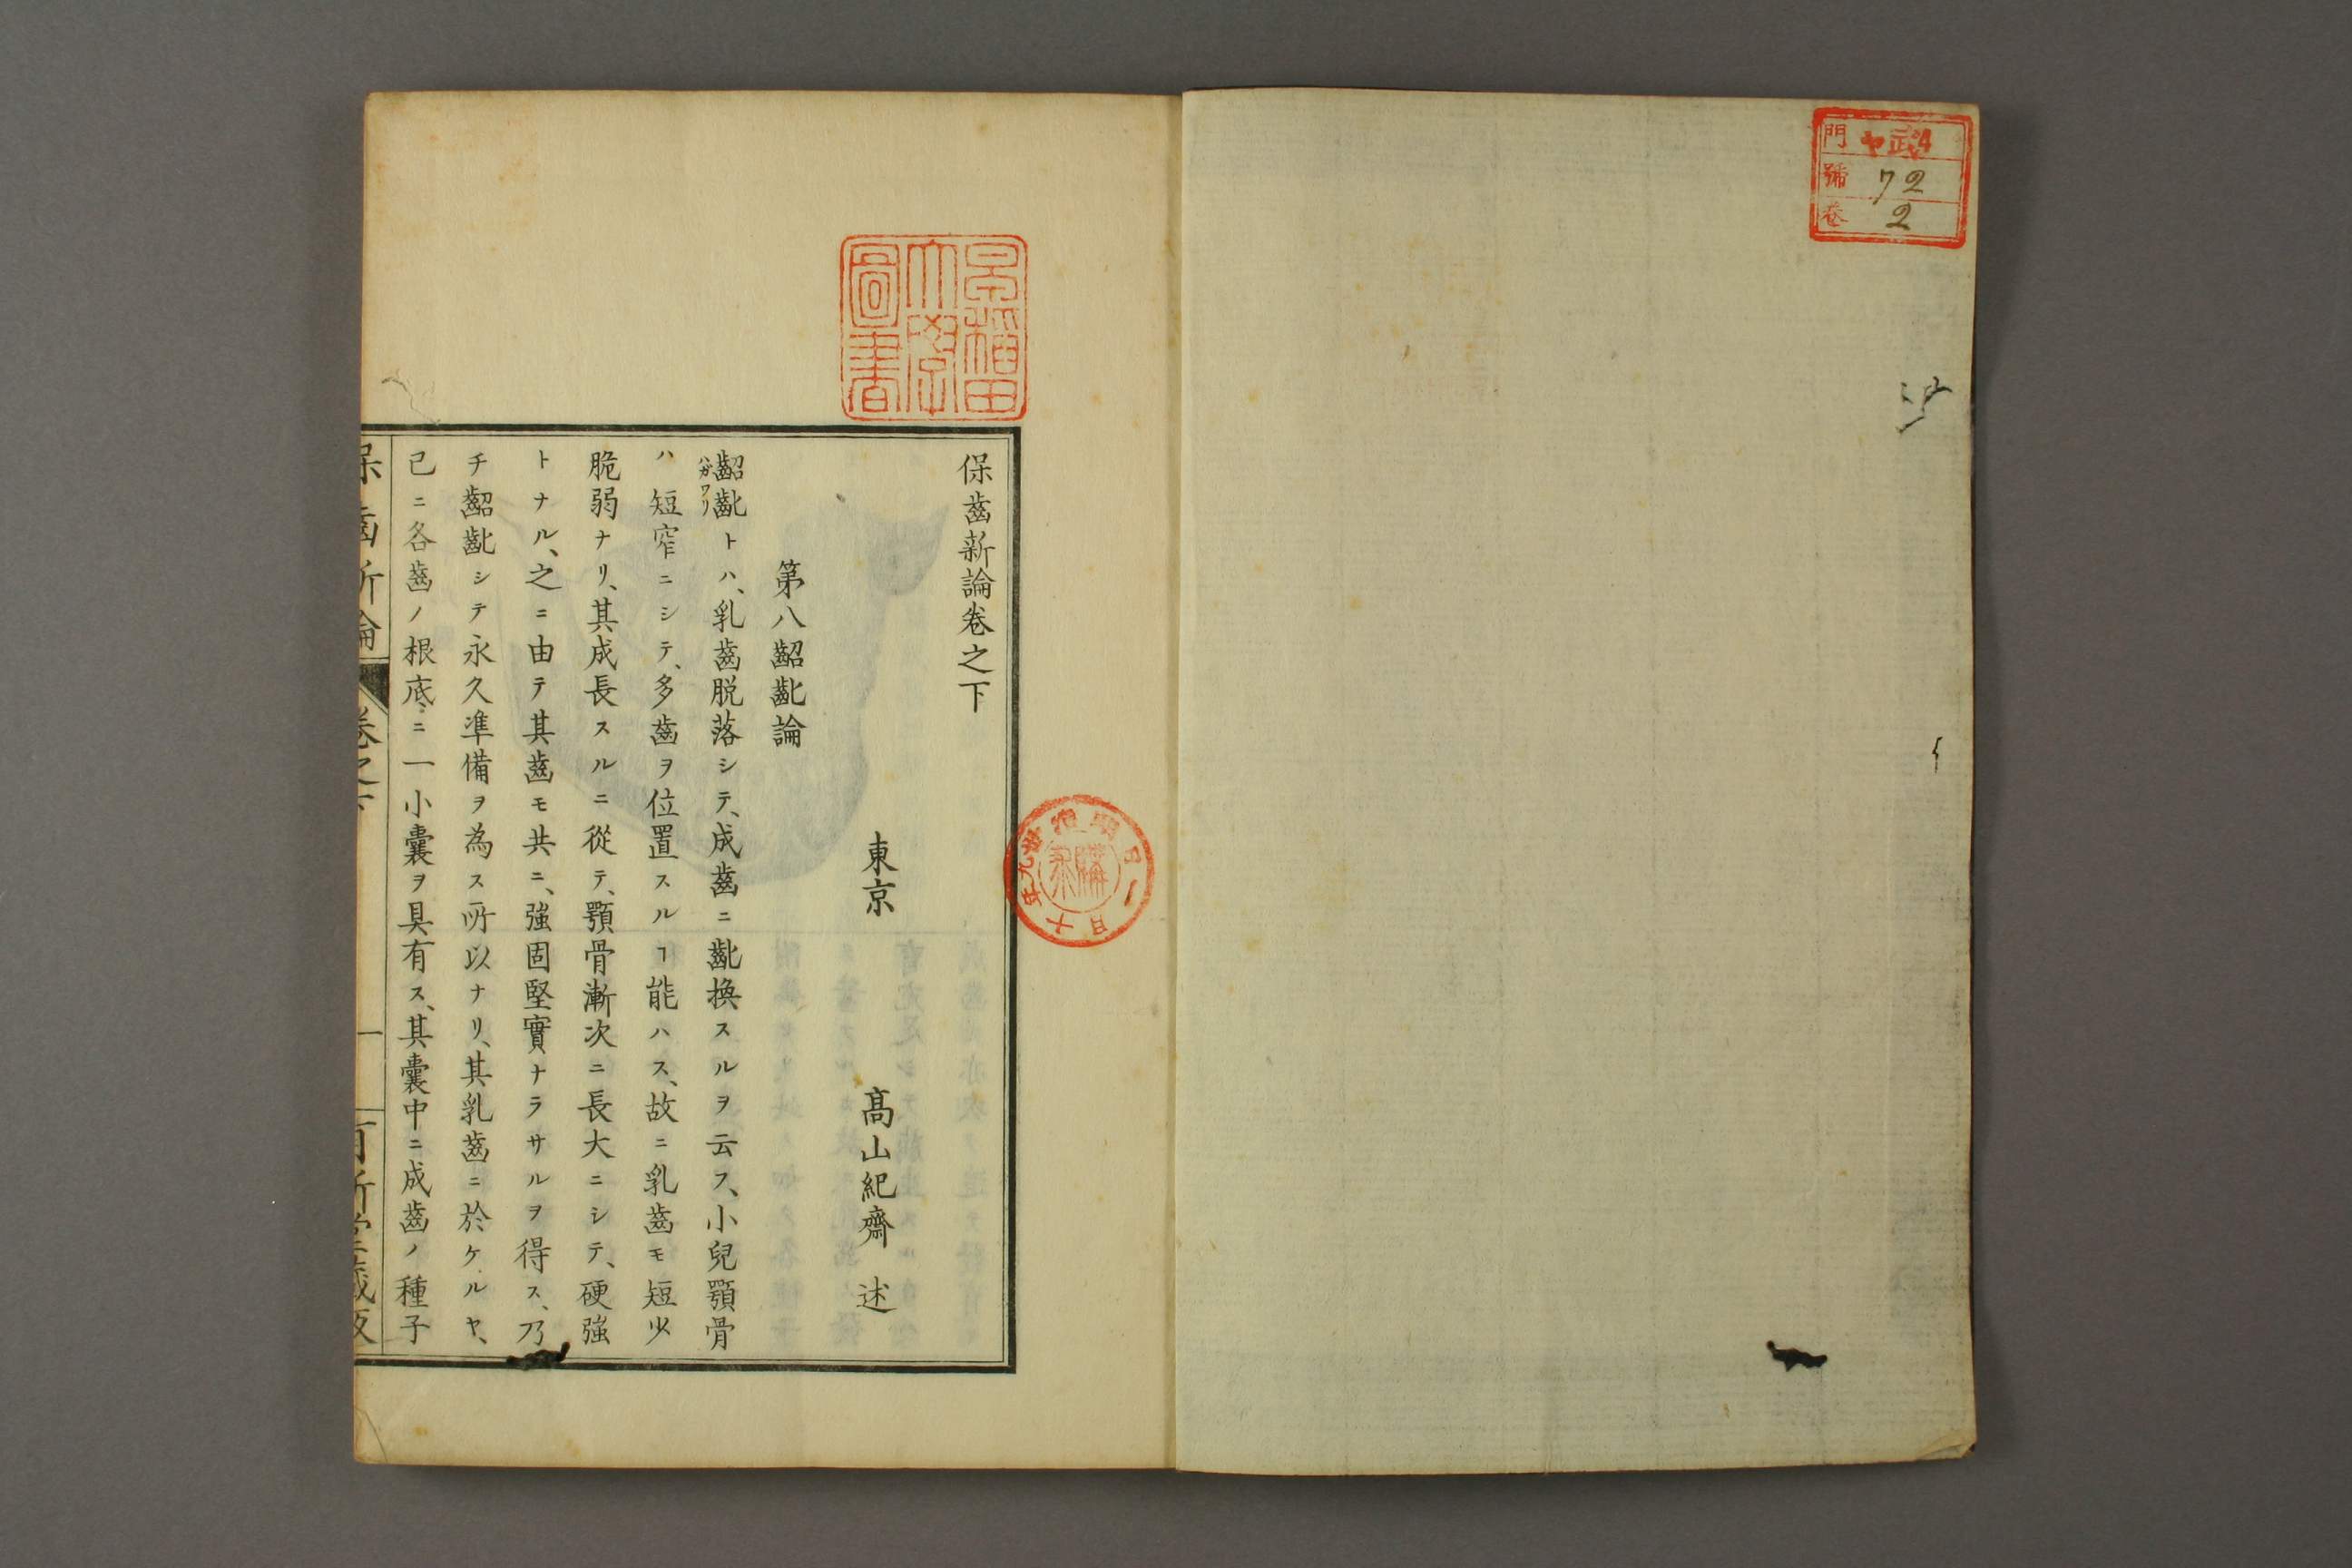 門 ヤ
號 72
卷 2
早稲田
大學
圖書
明治卅九年十月一日
購求
保齒新論卷之下
東京 髙山紀齋 述
第八齠齔論
齠齔トハ、乳齒脱落シテ、成齒ニ齔換スルヲ云フ、小兒顎骨
ハガワリ
ハ短窄ニシテ、多齒ヲ位置スルヿ能ハス、故ニ乳齒モ短少
脆弱ナリ、其成長スルニ從テ、顎骨漸次ニ長大ニシテ、硬強
トナル、之ニ由テ其齒モ共ニ、強固堅實ナラサルヲ得ス、乃
チ齠齔シテ永久準備ヲ為ス所以ナリ、其乳齒ニ於ケルヤ、
已ニ各齒ノ根底ニ一小囊ヲ具有ス、其囊中ニ成齒ノ種子
保齒新論 卷之下 一